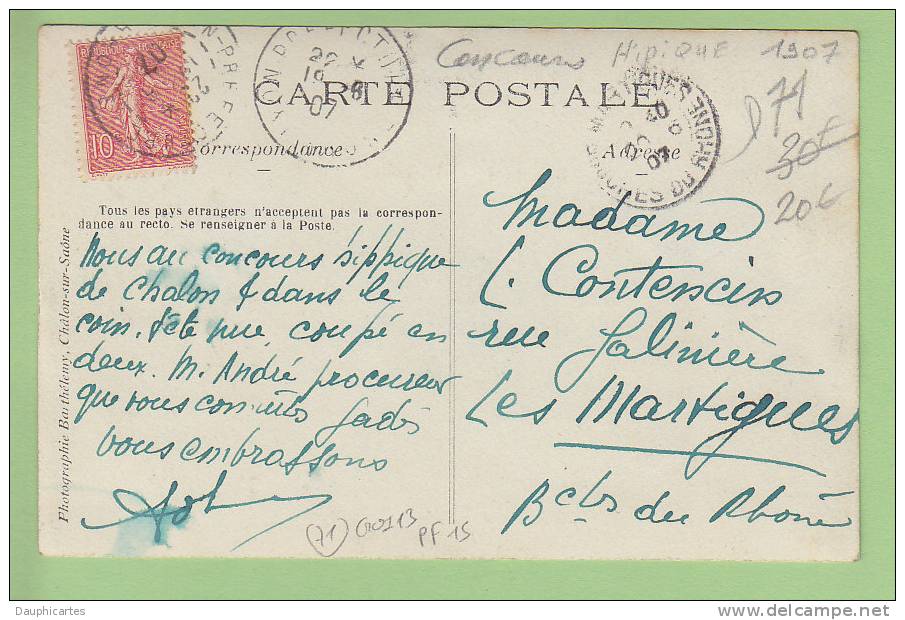 Concours Hipique 1907
71
30€
20€
REPUBLIQUE FRANÇAISE
10
22
10
07
CARTE POSTALE
Correspondance
Adresse
MARTIGUES
BOUCHES DU RHONE
Tous les pays etrangers n'acceptent pas la correspon-
dance au recto. Se renseigner à la Poste.
Nous au concours hippique
de Chalon & dans le
coin, tête nue, coupé en
deux. M. André procureur
que vous connûtes jadis
vous embrassons
Madame
L. Contencin
rue Galinière
Les Martigues
Bches du Rhône
Photographie Barthélemy, Châlon-sur-Saône
71
PF 15
Dauphicartes
www.delcampe.net